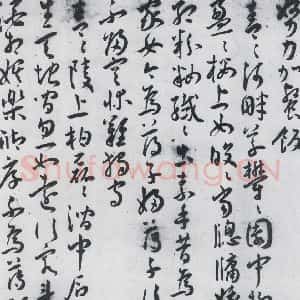 努力加餐飯
青々河畔草鬱々園中柳
盈々樓上女皎々當窗牖娥
紅粉粧纖々出素手昔為
家女今為蕩子婦蕩子行
不歸空床難獨守
青々陵上柏磊々澗中石
生天地間忽如遠行客斗
酒相娛樂聊厚不為薄
Shufawang.CN